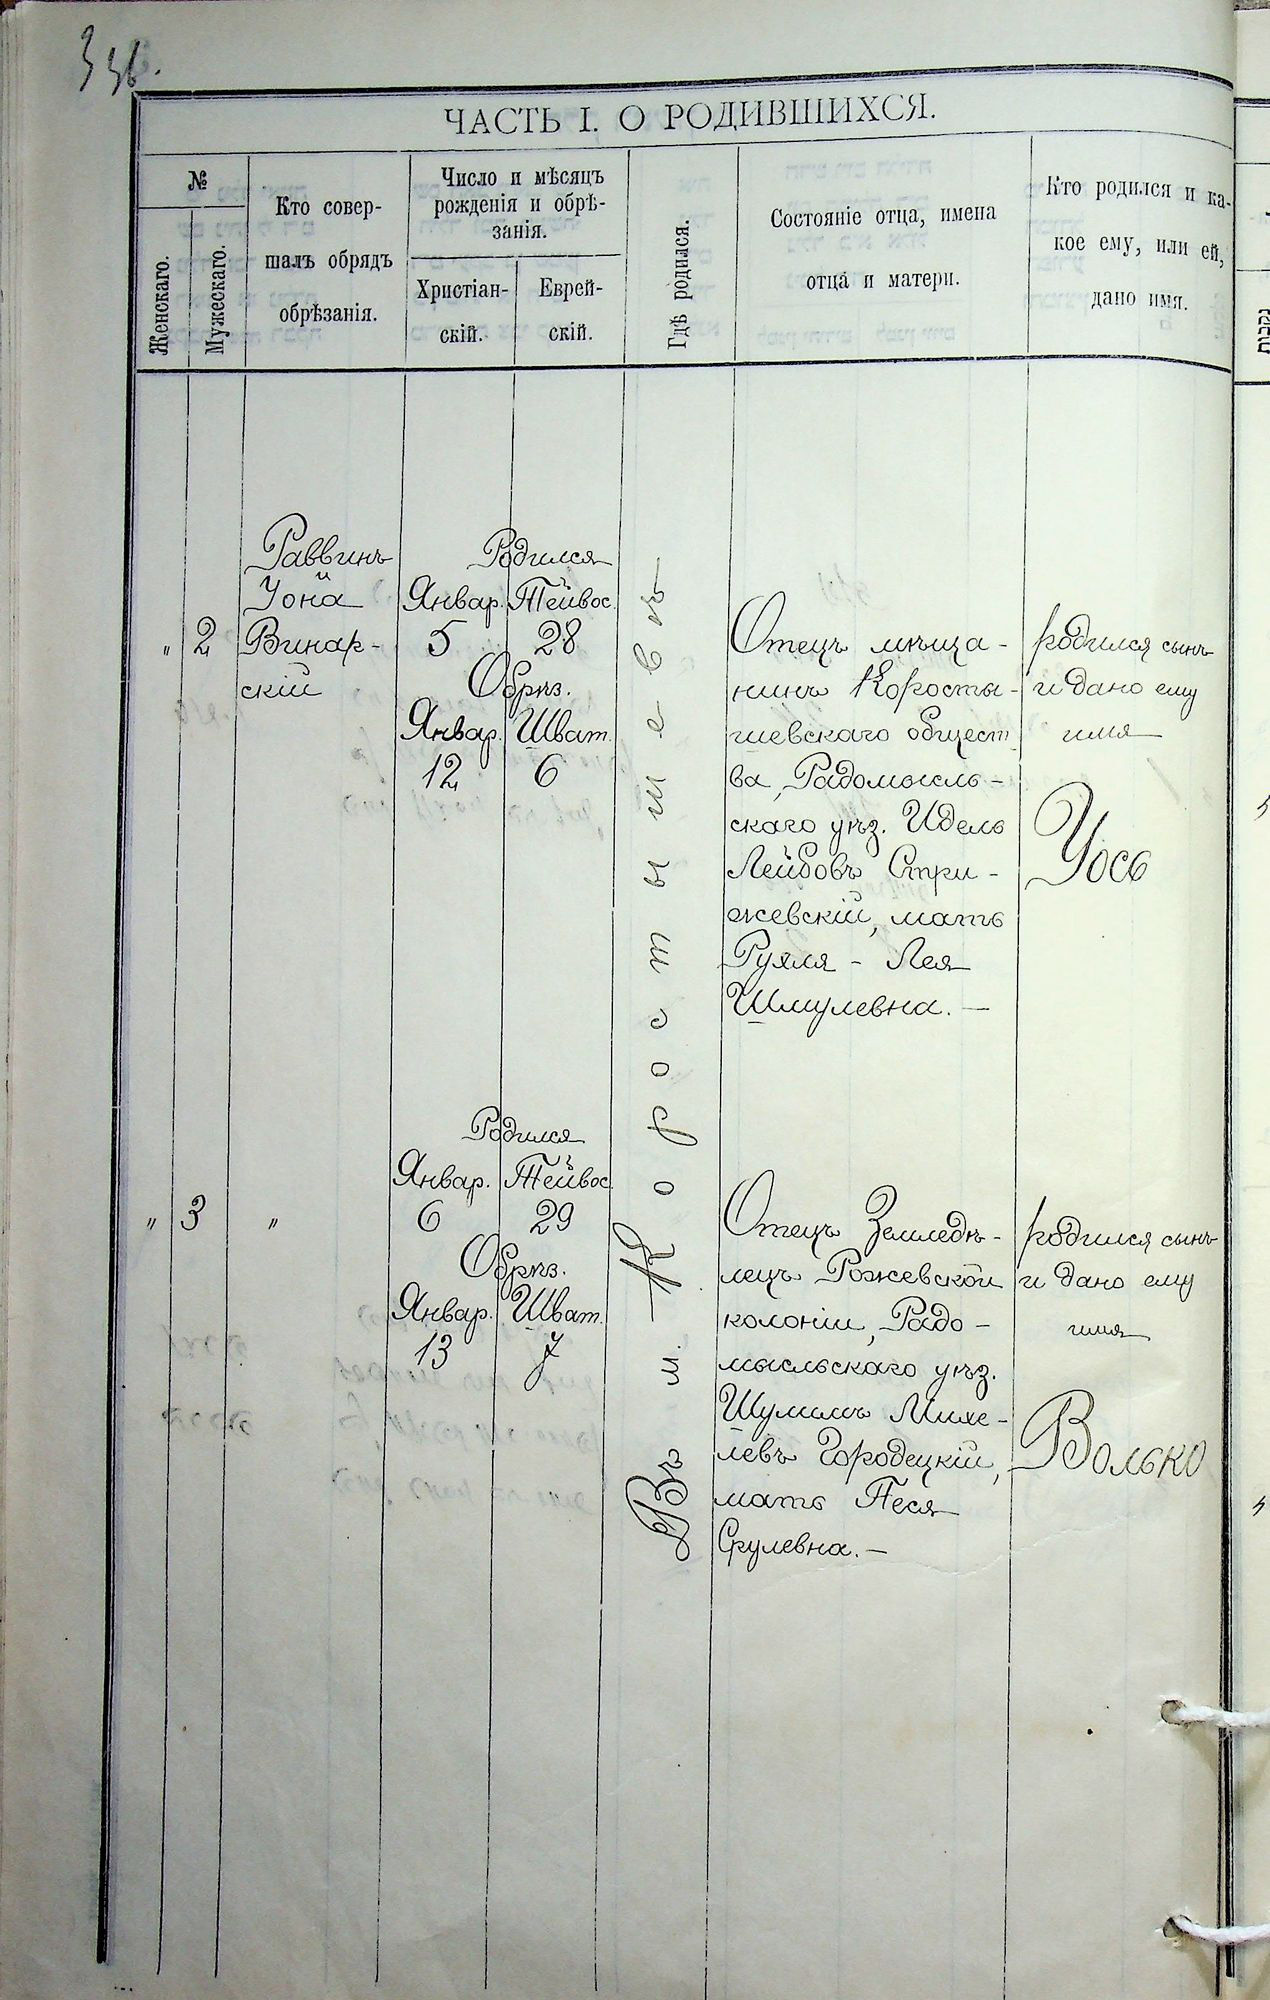 ЧАСТЬ I. О РОДИВШИХСЯ.
№
Женскаго.
Мужескаго.
Кто совер-
шалъ обрядъ
обрѣзанія.
Число и мѣсяцъ
рожденія и обрѣ-
занія.
Христіан-
скій.
Еврей-
скій.
Гдѣ родился.
Состояніе отца, имена
отца и матери.
Кто родился и ка-
кое ему, или ей,
дано имя.
" 2
Раввинъ
Іона
Винар-
скій
Родился
Январ. Тейвос.
5 28
Обрѣз.
Январ. Шват.
12 6
Въ м. Коростышевѣ
Отецъ мѣща-
нинъ Коросты-
шевскаго общест
ва, Радомысль-
скаго уѣз. Идель
Лейбовъ Стри-
жевскій, мать
Рухля - Лея
Шмулевна. —
родился сынъ
и дано ему
имя
Іось
" 3 "
Родился
Январ. Тейвос.
6 29
Обрѣз.
Январ. Шват.
13 7
Отецъ Земледѣ-
лецъ Рожевской
колоніи, Радо-
мысльскаго уѣз.
Шулимъ Михе-
левъ Городецкій,
мать Песя
Срулевна. —
родился сынъ
и дано ему
имя
Волько